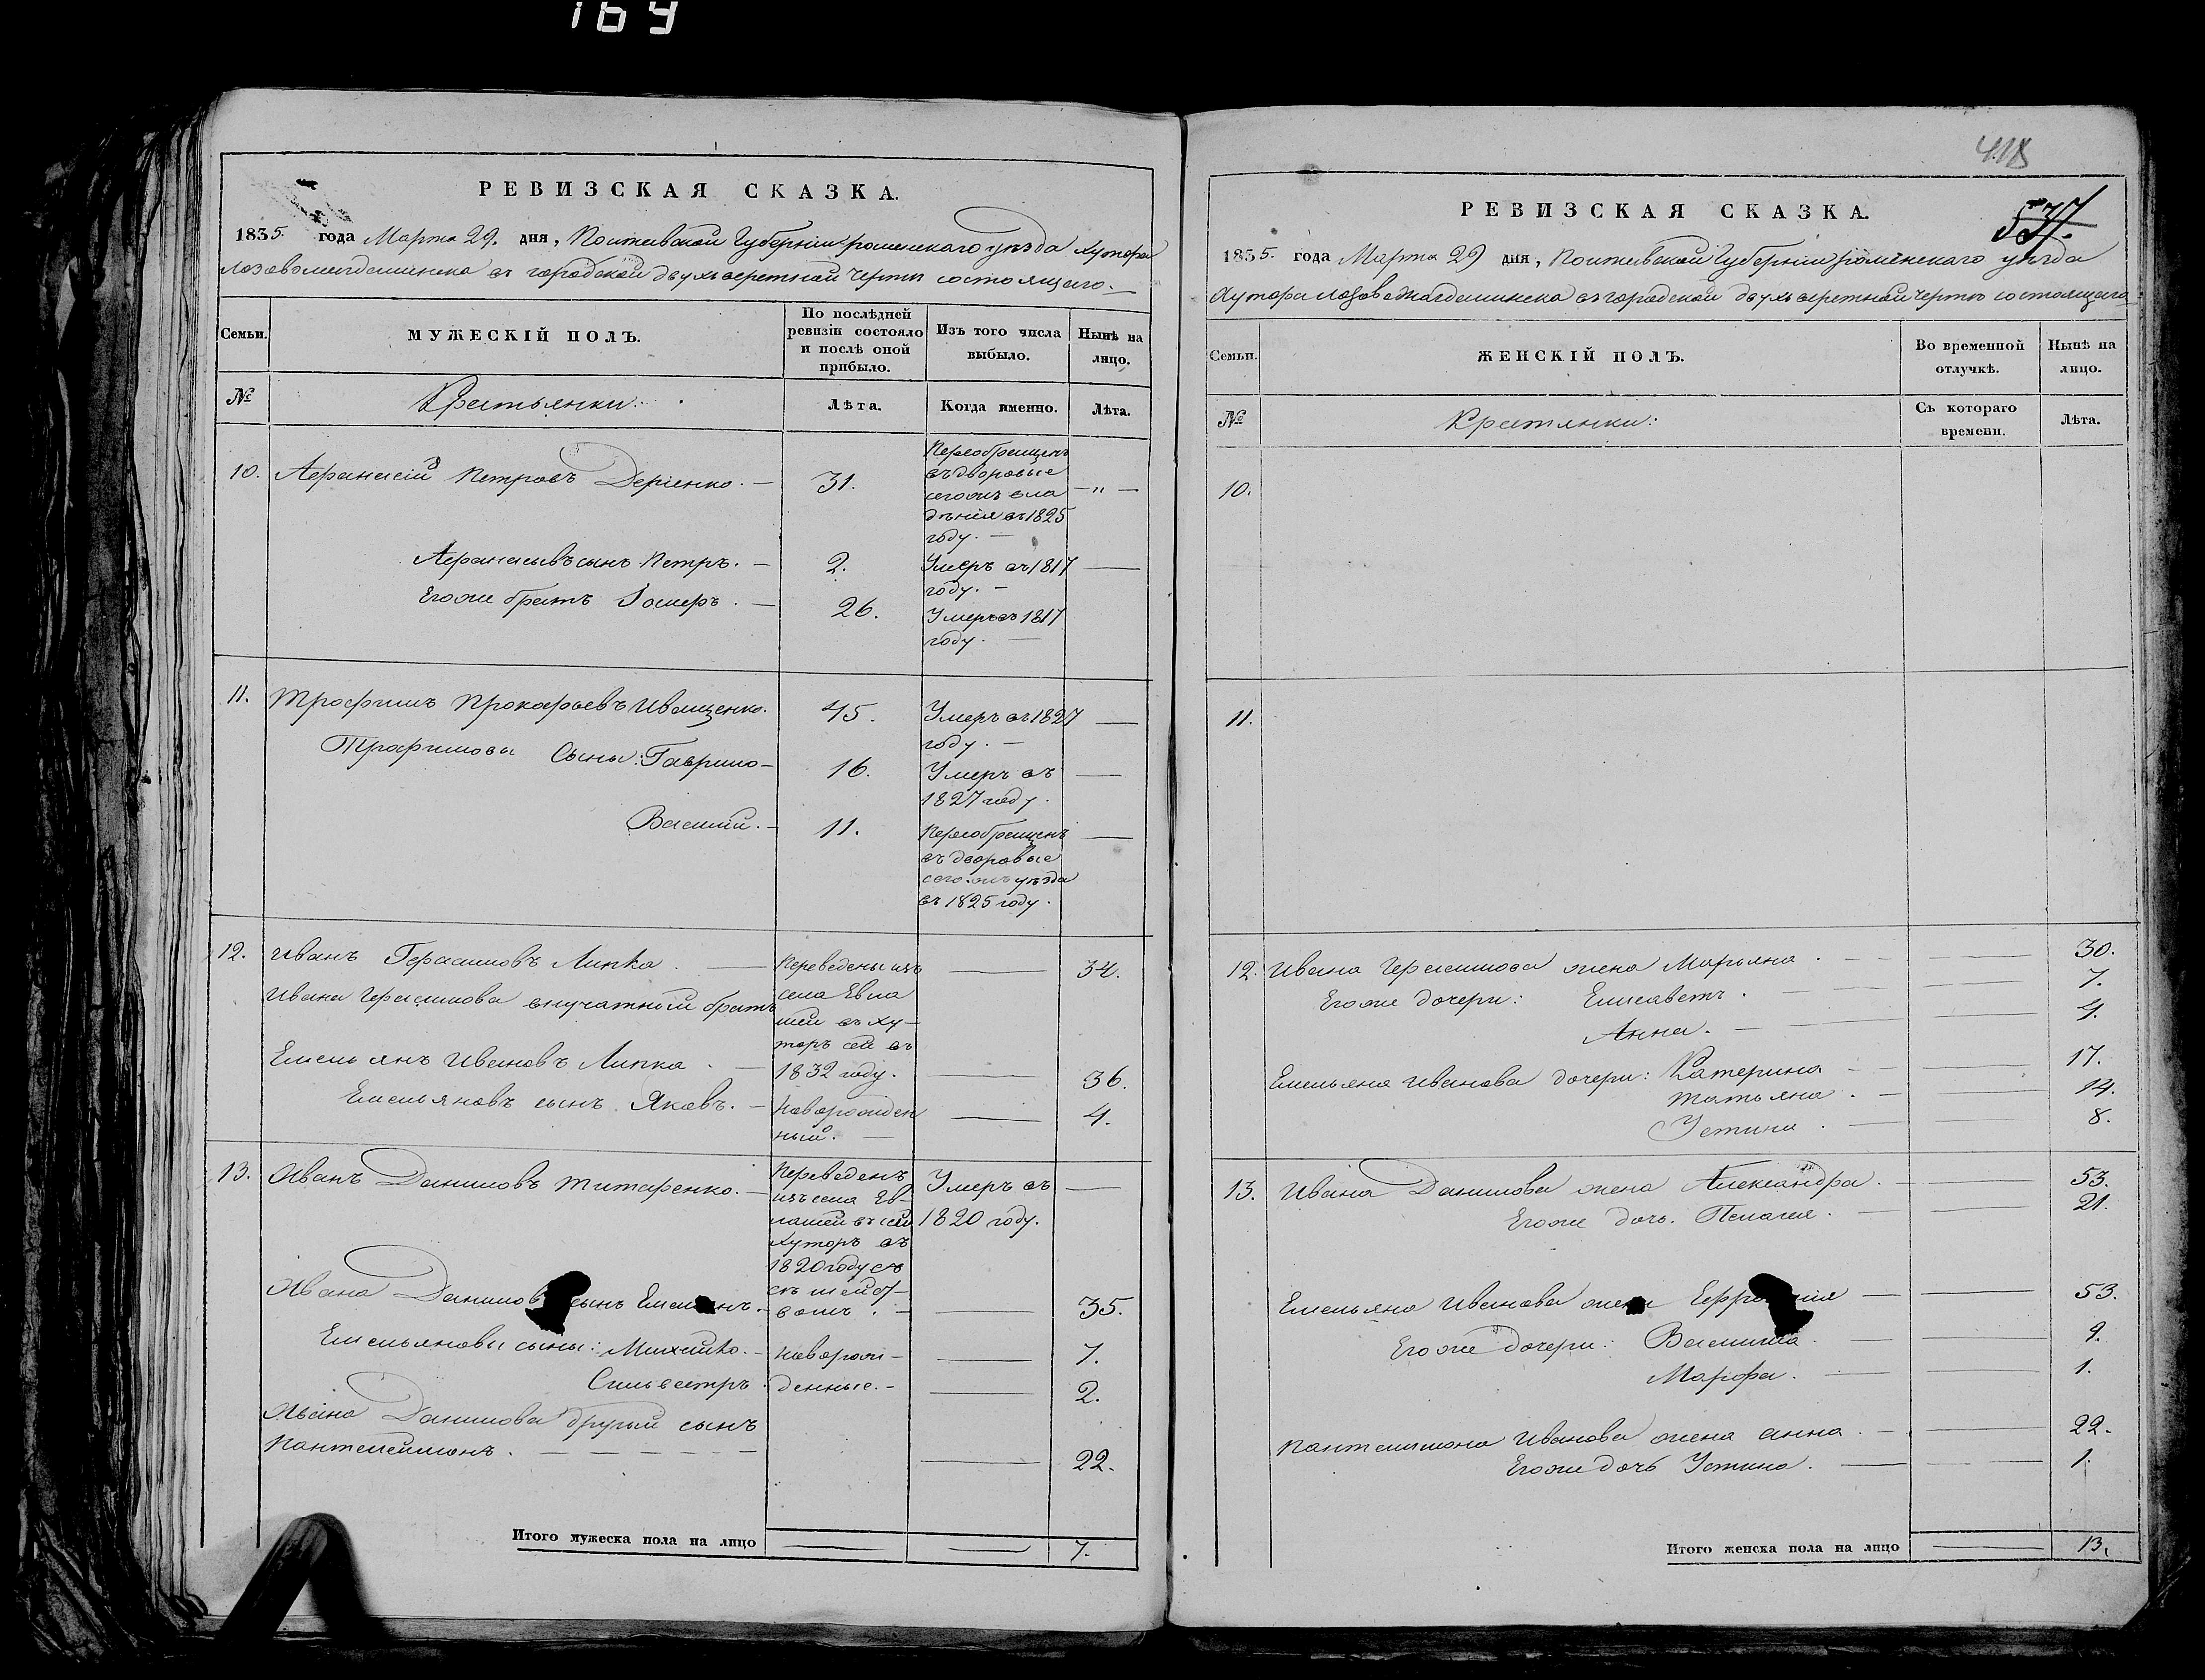 169
РЕВИЗСКАЯ СКАЗКА.
1835. года Марта 29. дня, Полтавской Губерніи роменскаго уѣзда хутора
въ городской двухверстной черты состоящаго.
Семьи.
МУЖЕСКІЙ ПОЛЪ.
По послѣдней ревизіи состояло и послѣ оной прибыло.
Изъ того числа выбыло.
Нынѣ на лицо.
№
Крестьянки.
Лѣта.
Когда именно.
Лѣта.
10. Афанасій Петровъ 31.
Переобращенъ
въ дворовые
сегожъ вла
дѣнія въ 1825
году. —
— " —
Афанасьевъ сынъ Петръ. — 2. Умеръ въ 1817 —
году. —
Егоже братъ — 26. Умеръ въ 1817
году. —
11. Трофимъ Прокофьевъ Иващенко. 45. Умеръ въ 1827 —
году. —
Трофимова Сыны: Гаврило — 16. Умеръ въ —
1827 году.
Василій. — 11. Переобращенъ —
въ дворовые
сегожъ уѣзда
въ 1825 году.
12. Иванъ Герасимовъ Липка. — Переведены изъ — 34.
Ивана Герасимова внучатный братъ
села Евла
шей въ ху-
торъ сей въ
Емельянъ Ивановъ Липка. — 1832 году. — 36.
Емельяновъ сынъ Яковъ. — Новорожден — 4.
ный. —
13. Иванъ Даниловъ Титаренко. — Переведенъ Умеръ въ —
изъ села Ев
лашей въ сей 1820 году.
хуторъ въ
1820 году съ
семейст-
Ивана Данилов сынъ Емел нъ. — вомъ. — — 35.
Емельяновы сыны: Михайло. — Новорож- — 7.
Сильвестръ. денные. — — 2.
Ивана Данилова другій сынъ
Пантелеймонъ. — — — — — 22.
Итого мужеска пола на лицо — — 7.
418
537.
РЕВИЗСКАЯ СКАЗКА.
1835. года Марта 29 дня, Полтавской Губерніи роменскаго уѣзда
Хутора въ городской двухверстной чертѣ состоящаго
Семьи.
ЖЕНСКІЙ ПОЛЪ.
Во временной отлучкѣ.
Нынѣ на лицо.
№
Крестянки:
Съ котораго времени.
Лѣта.
10.
11.
12. Ивана Герасимова жена Марьяна. — — 30.
Егоже дочери: Елисаветъ. — — 7.
Анна. — — 4.
Емельяна Иванова дочери: Катерина — — 17.
Татьяна. — — 14.
Устина. — — 8.
13. Ивана Данилова жена Александра. — — 53.
Егоже дочь. Пелагея. — — 21.
Емельяна Иванова жена — — 53.
Егоже дочери: Василиса. — — 9.
Марфа. — — 1.
Пантелимона Иванова жена анна. — — 22.
Егоже дочь Устина. — — 1.
Итого женска пола на лицо — 13.